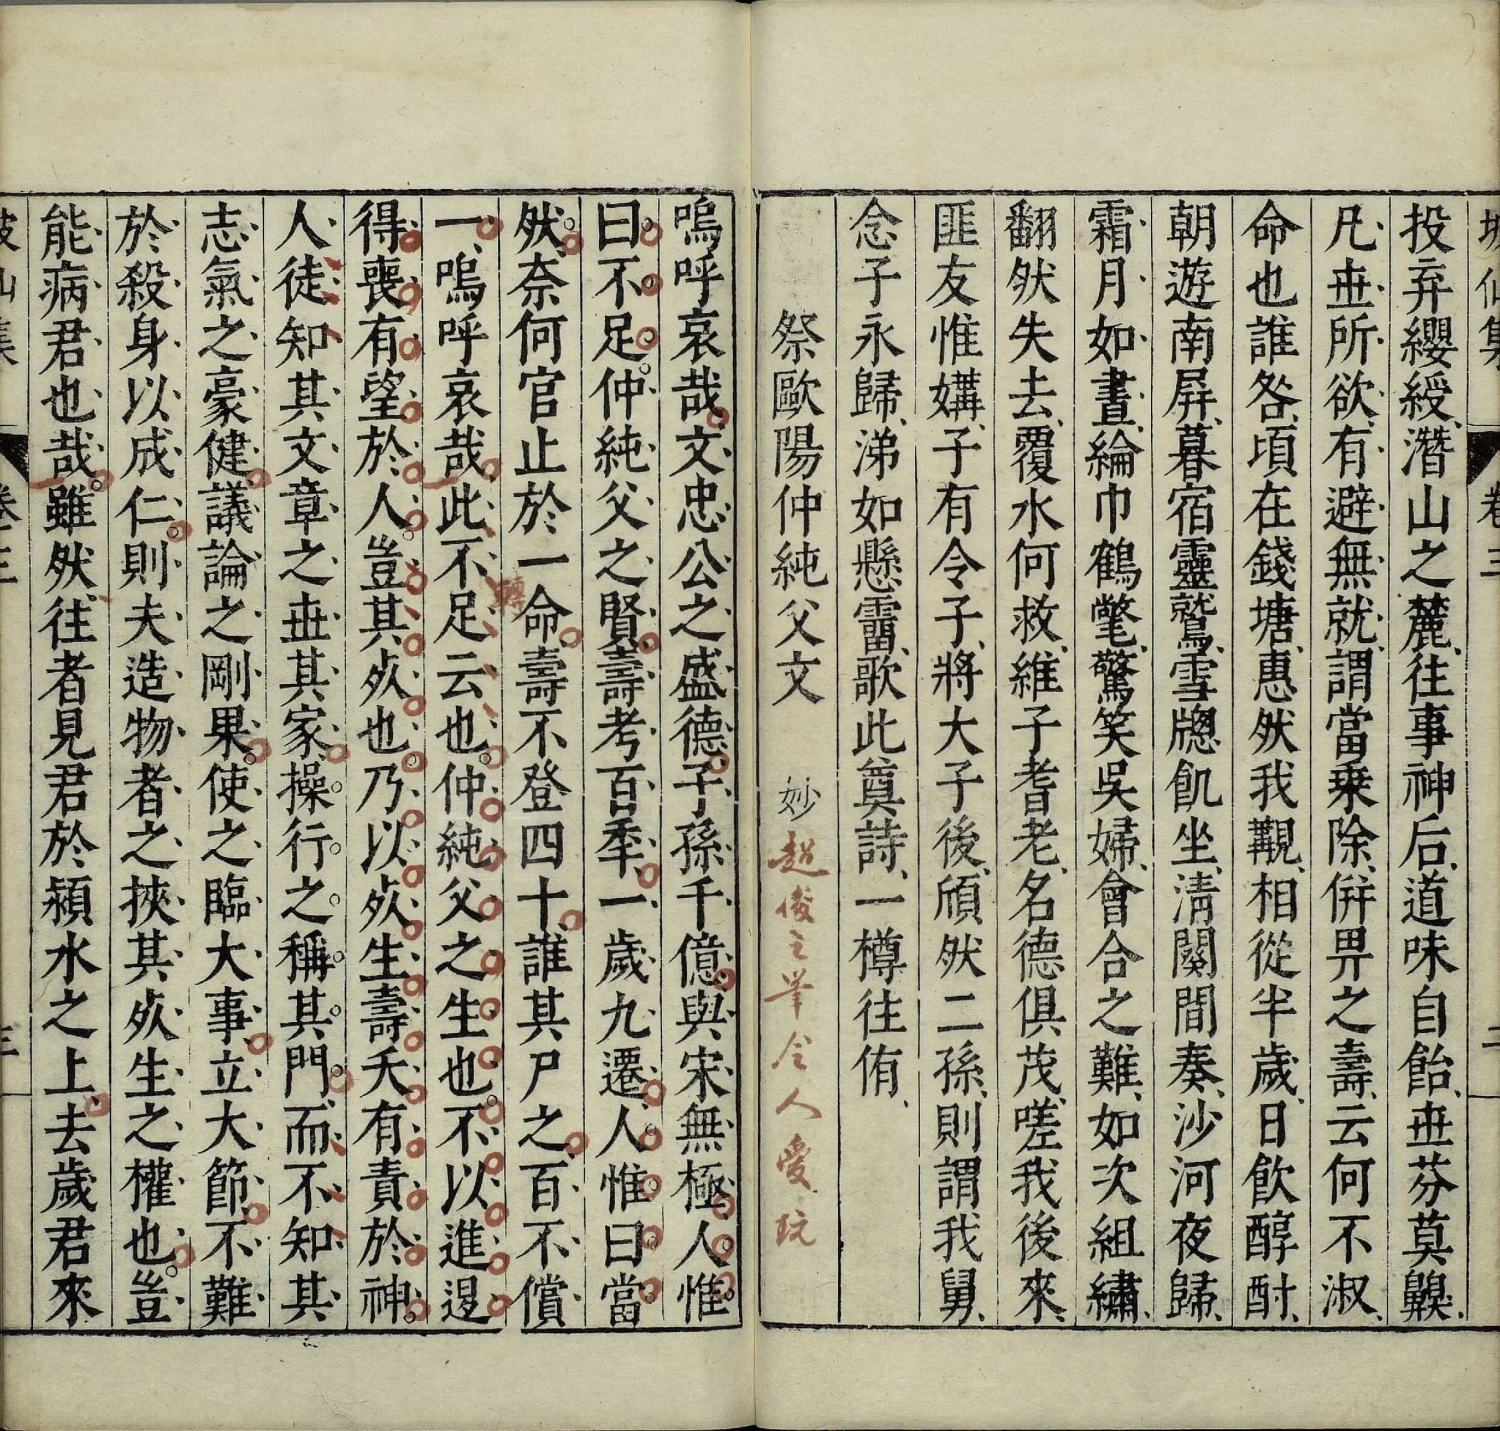 坡仙集 卷三 二
投弃纓綬潛山之麓往事神后道味自飴世芬莫齅
凡世所欲有避無就謂當乗除併畀之壽云何不淑
命也誰咎頃在錢塘惠然我覯相從半歲日飲醇酎
朝遊南屏暮宿靈鷲雪牕飢坐清闋間奏沙河夜歸
霜月如晝綸巾鶴氅驚笑吳婦會合之難如次組繡
翻然失去覆水何救維子耆老名德俱茂嗟我後來
匪友惟媾子有令子將大子後頎然二孫則謂我舅
念子永歸涕如懸霤歌此奠詩一樽往侑
祭歐陽仲純父文 妙 超俊之筆令人愛玩
嗚呼哀哉文忠公之盛德子孫千億與宋無極人惟
曰不足仲純父之賢壽考百年一歲九遷人惟曰當
然奈何官止於一命壽不登四十誰其尸之百不償
一嗚呼哀哉此不足云也仲純父之生也不以進退
轉
得喪有望於人豈其死也乃以死生壽夭有責於神
人徒知其文章之世其家操行之稱其門而不知其
志氣之豪健議論之剛果使之臨大事立大節不難
於殺身以成仁則夫造物者之挾其死生之權也豈
能病君也哉雖然往者見君於潁水之上去歲君來
坡仙集 卷三 三